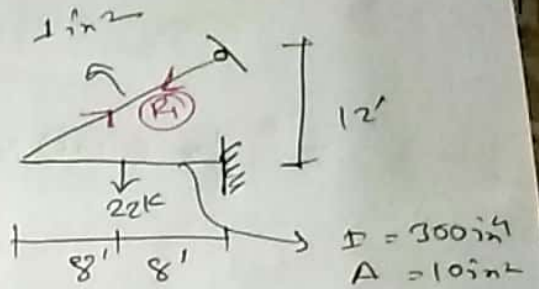 1 in²
R₁
12'
22K
8' 8'
I = 300 in⁴
A = 10 in²